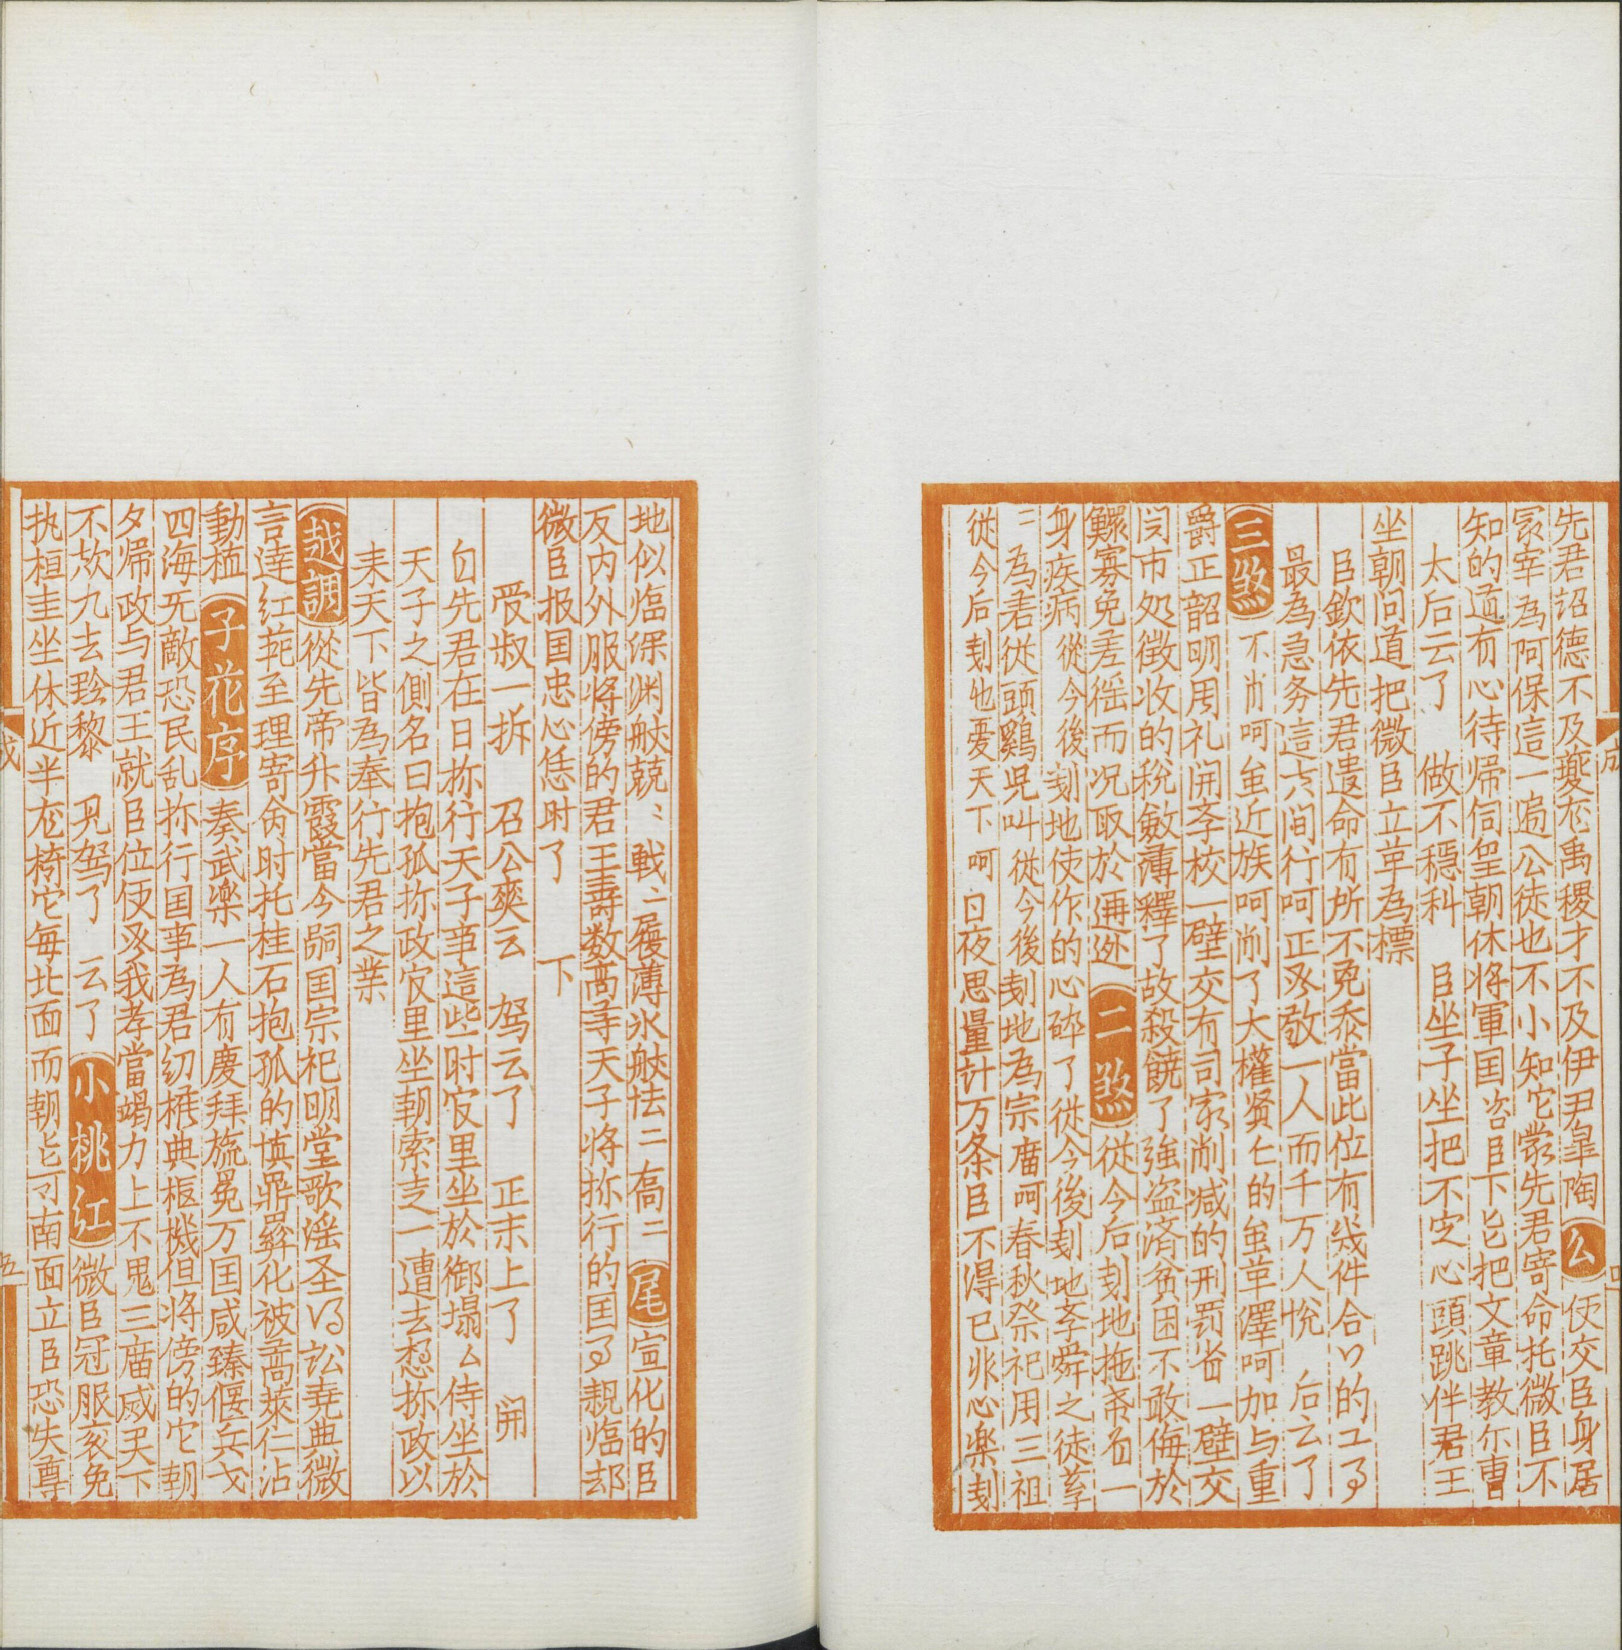 先君詔德不及夔尨禹稷才不及伊尹皐陶 么 使交臣身居
冢宰為阿保這一遍公徒也不小知它蒙先君寄命托微臣不
知的道有心待帰伺皇朝休将軍囯咨臣下㠯把文章教尔曹
太后云了 做不穩科 臣坐子坐把不定心頭跳伴君王
坐朝问道把微臣立草為標
臣欽依先君遺命有所不免忝當此位有㡬件合的工
最為急务這六间行呵正𭛁敬一人而千万人恱 后云了
三煞 不肖呵虽近族呵削了大權贤仁的虽草澤呵加与重
爵正韶明周礼闲孝校一壁交有司家削减的刑罚省一壁交
関市処徵收的税敛薄釋了故殺饒了強盗済贫困不敢侮於
鰥寡免差徭而况取於逥迯 二煞 従今后刬地拖帚⺈一
身疾病從今後刬地使作的心碎了従今後刬地孝舜之徒孳
〻為君従頭鷄児叫従今後刬地為宗庿呵春秋祭祀用三祖
従今后刬也憂天下呵日夜思量计万条臣不淂已非心楽刬
地似临深渊般兢〻戦〻履薄氷般怯〻喬〻 尾 宣化的臣
反内外服将傍的君王壽数高等天子将㧑行的囯親临却
微臣报囯忠心恁时了 下
受叔一拆 召公奭云 驾云了 正末上了 闲
自先君在日㧑行天子亊這些时㝎里坐於御塌么侍坐於
天子之側名曰抱孤㧑政㝎里坐朝索走一遭去想㧑政以
来天下皆為奉行先君之業
越調 從先帝升霞當今嗣囯宗祀明堂歌謡圣讼尭典微
言達红範至理寄命时托桂石抱孤的慎鼎彛化被蒿萊仁沾
動植 子花序 奏武楽一人有慶拜旒冕万囯咸臻偃兵戈
四海无敵恐民乱㧑行囯亊為君幼権典枢機但将傍的它朝
夕帰政与君王就臣位使𭛁我孝當竭力上不鬼三庿威天下
不欺九去黔黎 見驾了 云了 小桃红 微臣冠服衮免
执桓圭坐休近半尨椅它每北面而朝㠯可南面立臣恐失尊